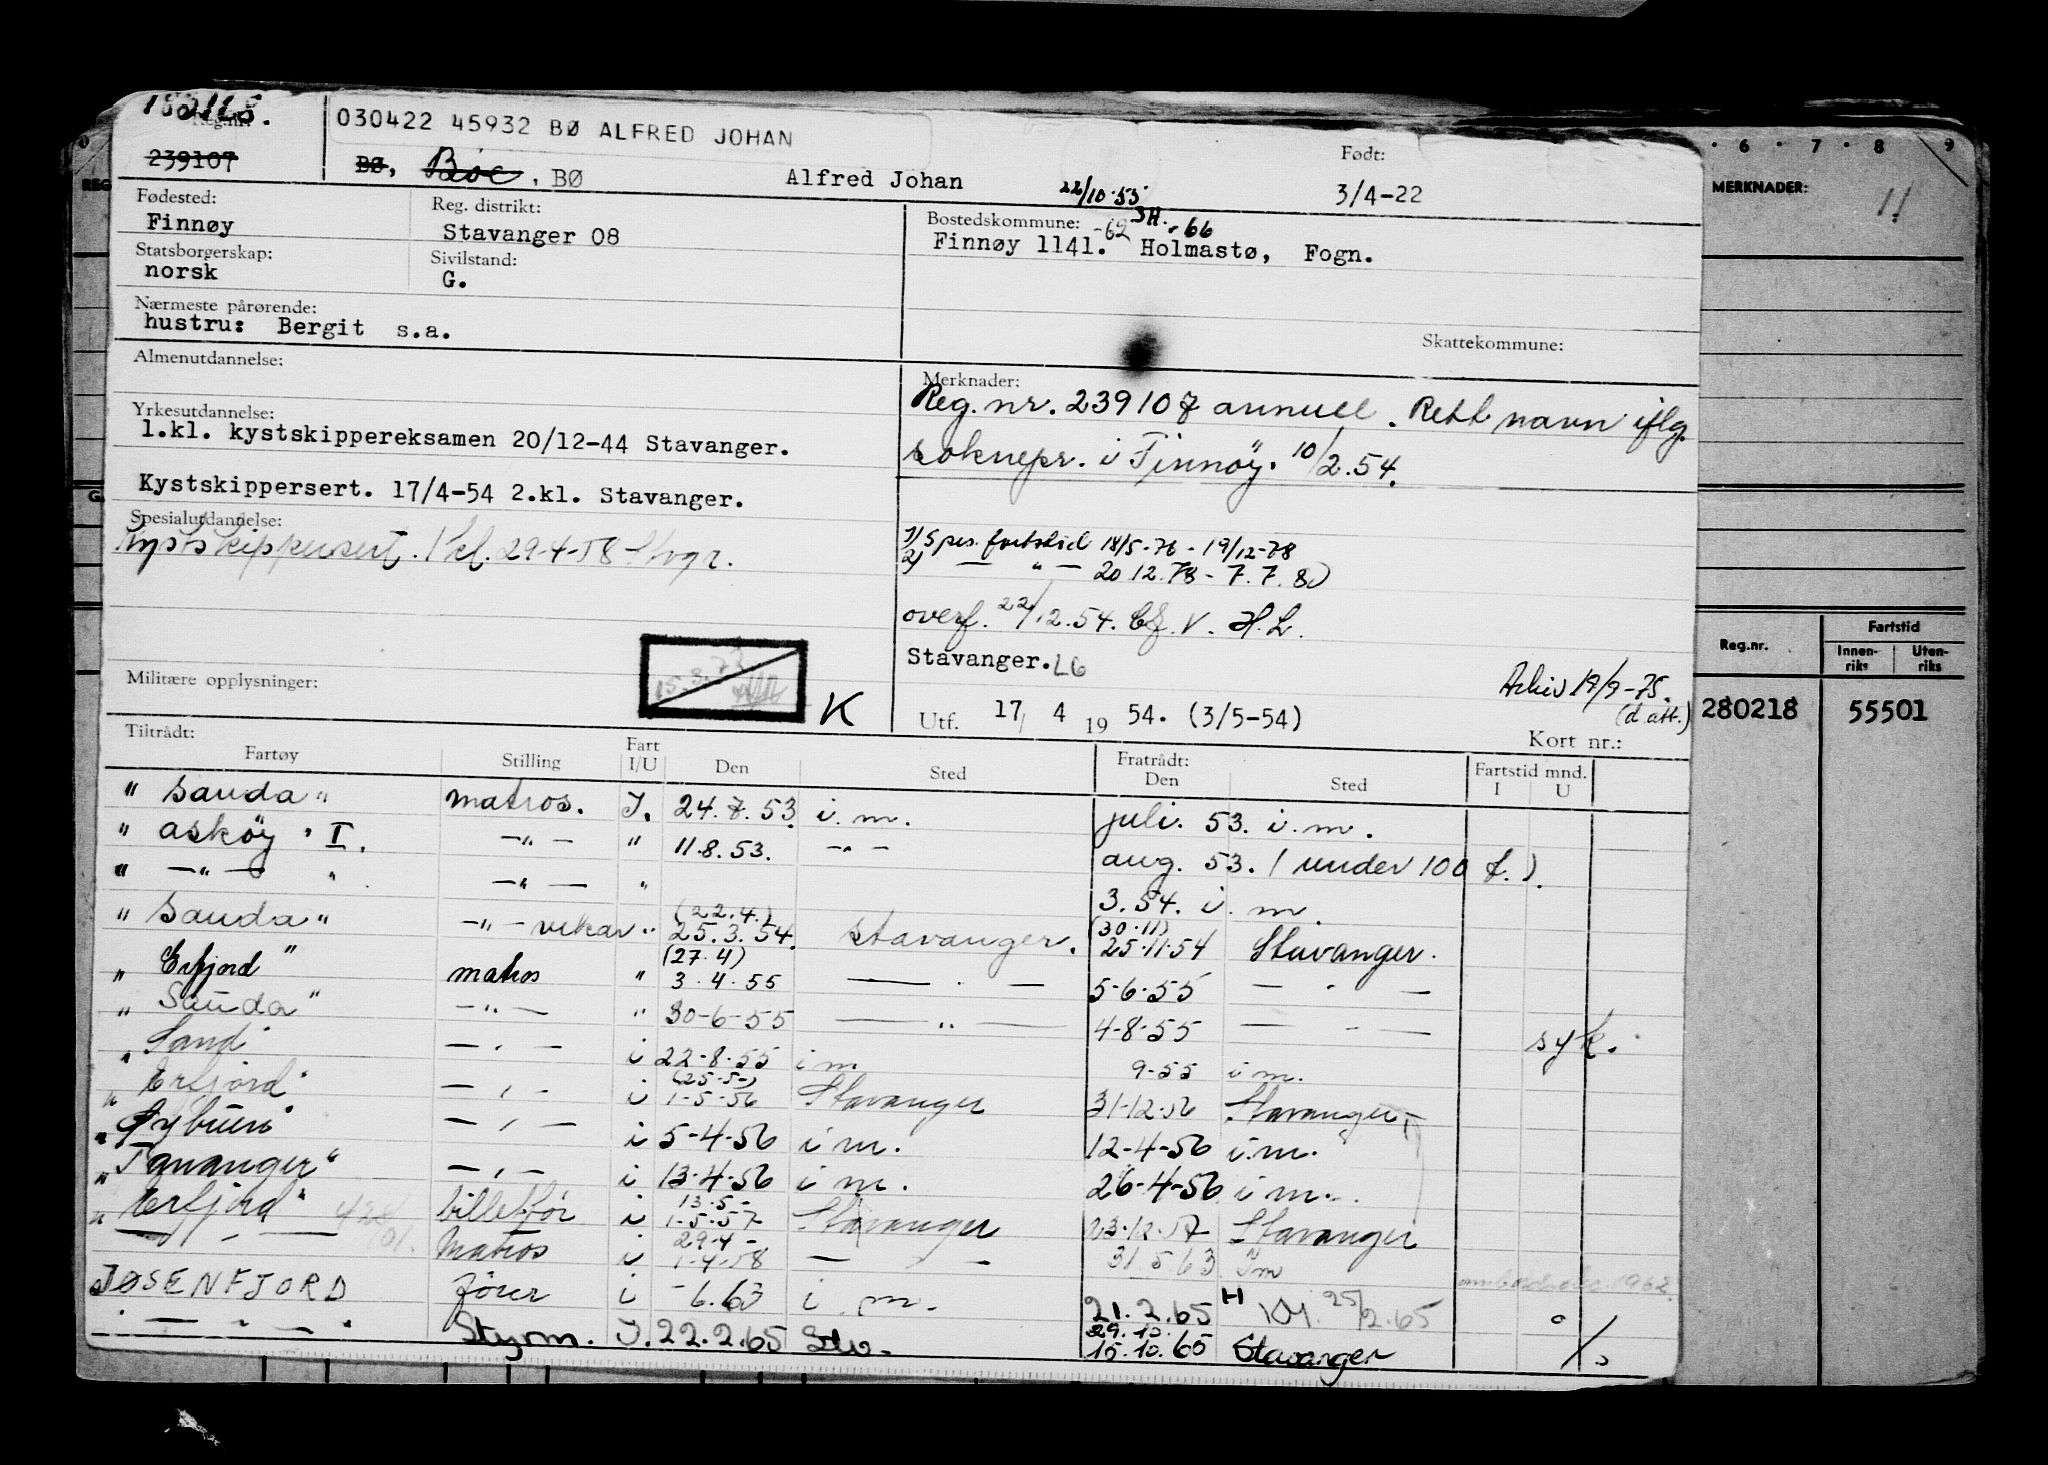 Reg.nr.
239107
030422 45932 BØ ALFRED JOHAN
BØ, Böe, BØ Alfred Johan
Født:
3/4-22
Fødested:
Finnøy
Reg. distrikt:
Stavanger 08
22/10-53
Bostedskommune: -62 SH. -66
Finnøy 1141. Holmastø, Fogn.
Statsborgerskap:
norsk
Sivilstand:
G.
Nærmeste pårørende:
hustru: Bergit s.a.
Skattekommune:
Almenutdannelse:
Merknader:
Reg.nr. 239107 annull. Rett navn iflg.
soknepr. i Finnøy. 10/2.54.
Yrkesutdannelse:
1.kl. kystskippereksamen 20/12-44 Stavanger.
Kystskippersert. 17/4-54 2.kl. Stavanger.
Spesialutdannelse:
Kystskippersert. 1 kl. 29-4-58 Stvgr.
1) Spes. fartstid 18/5-76 - 19/12-78
2) — " — 20 12.78 - 7.7.80
overf. 22/12.54. V. H.L.
Stavanger. LG
Militære opplysninger:
15.3.73
K
Utf. 17/ 4 19 54. (3/5-54)
Arkiv 19/9-75.
(d att.)
Kort nr.:
Tiltrådt:
Fartøy Stilling Fart I/U Den Sted Fratrådt: Den Sted Fartstid mnd. I U
" Sauda " matros. I. 24.7.53 i.m. juli. 53. i.m.
" Asköy " I. —"— " 11.8.53. —"— aug. 53. (under 100 t.).
" —"— " —"— " 3.54. i.m.
" Sauda " —"— vikar " (22.4.) 25.3.54. Stavanger. (30.11) 25.11.54 Stavanger.
" Erfjord " matros " (27.4) 3.4.55 — " — 5-6-55 — " —
" Sauda " —"— " 30-6-55 — " — 4-8-55 — " — syk.
" Sand " —"— i 22-8-55 i m 9-55 i m.
" Erfjord " —"— i (25.5-) 1-5-56 Stavanger 31-12-56 Stavanger
" Øybuen " —"— i 5-4-56 i m. 12-4-56 i.m.
" Tananger " —"— i 13-4-56 i m. 26-4-56 i m.
" Erfjord " billettør i 13.5- 1-5-57 Stavanger 23-12-57 Stavanger
" — " — Matros i 29-4- 1-4-58 — " — 31 5 63 Im
JØSENFJORD fører i -6.63 i m. 21.2.65 H 25/2.65
" — " — " Styrm. I. 22.2.65 Stv. 29.10. 15.10.65 Stavanger
REG
G.
6 7 8 9
MERKNADER:
11
Reg.nr.
Fartstid
Innen-
riks
Uten-
riks
280218 55501